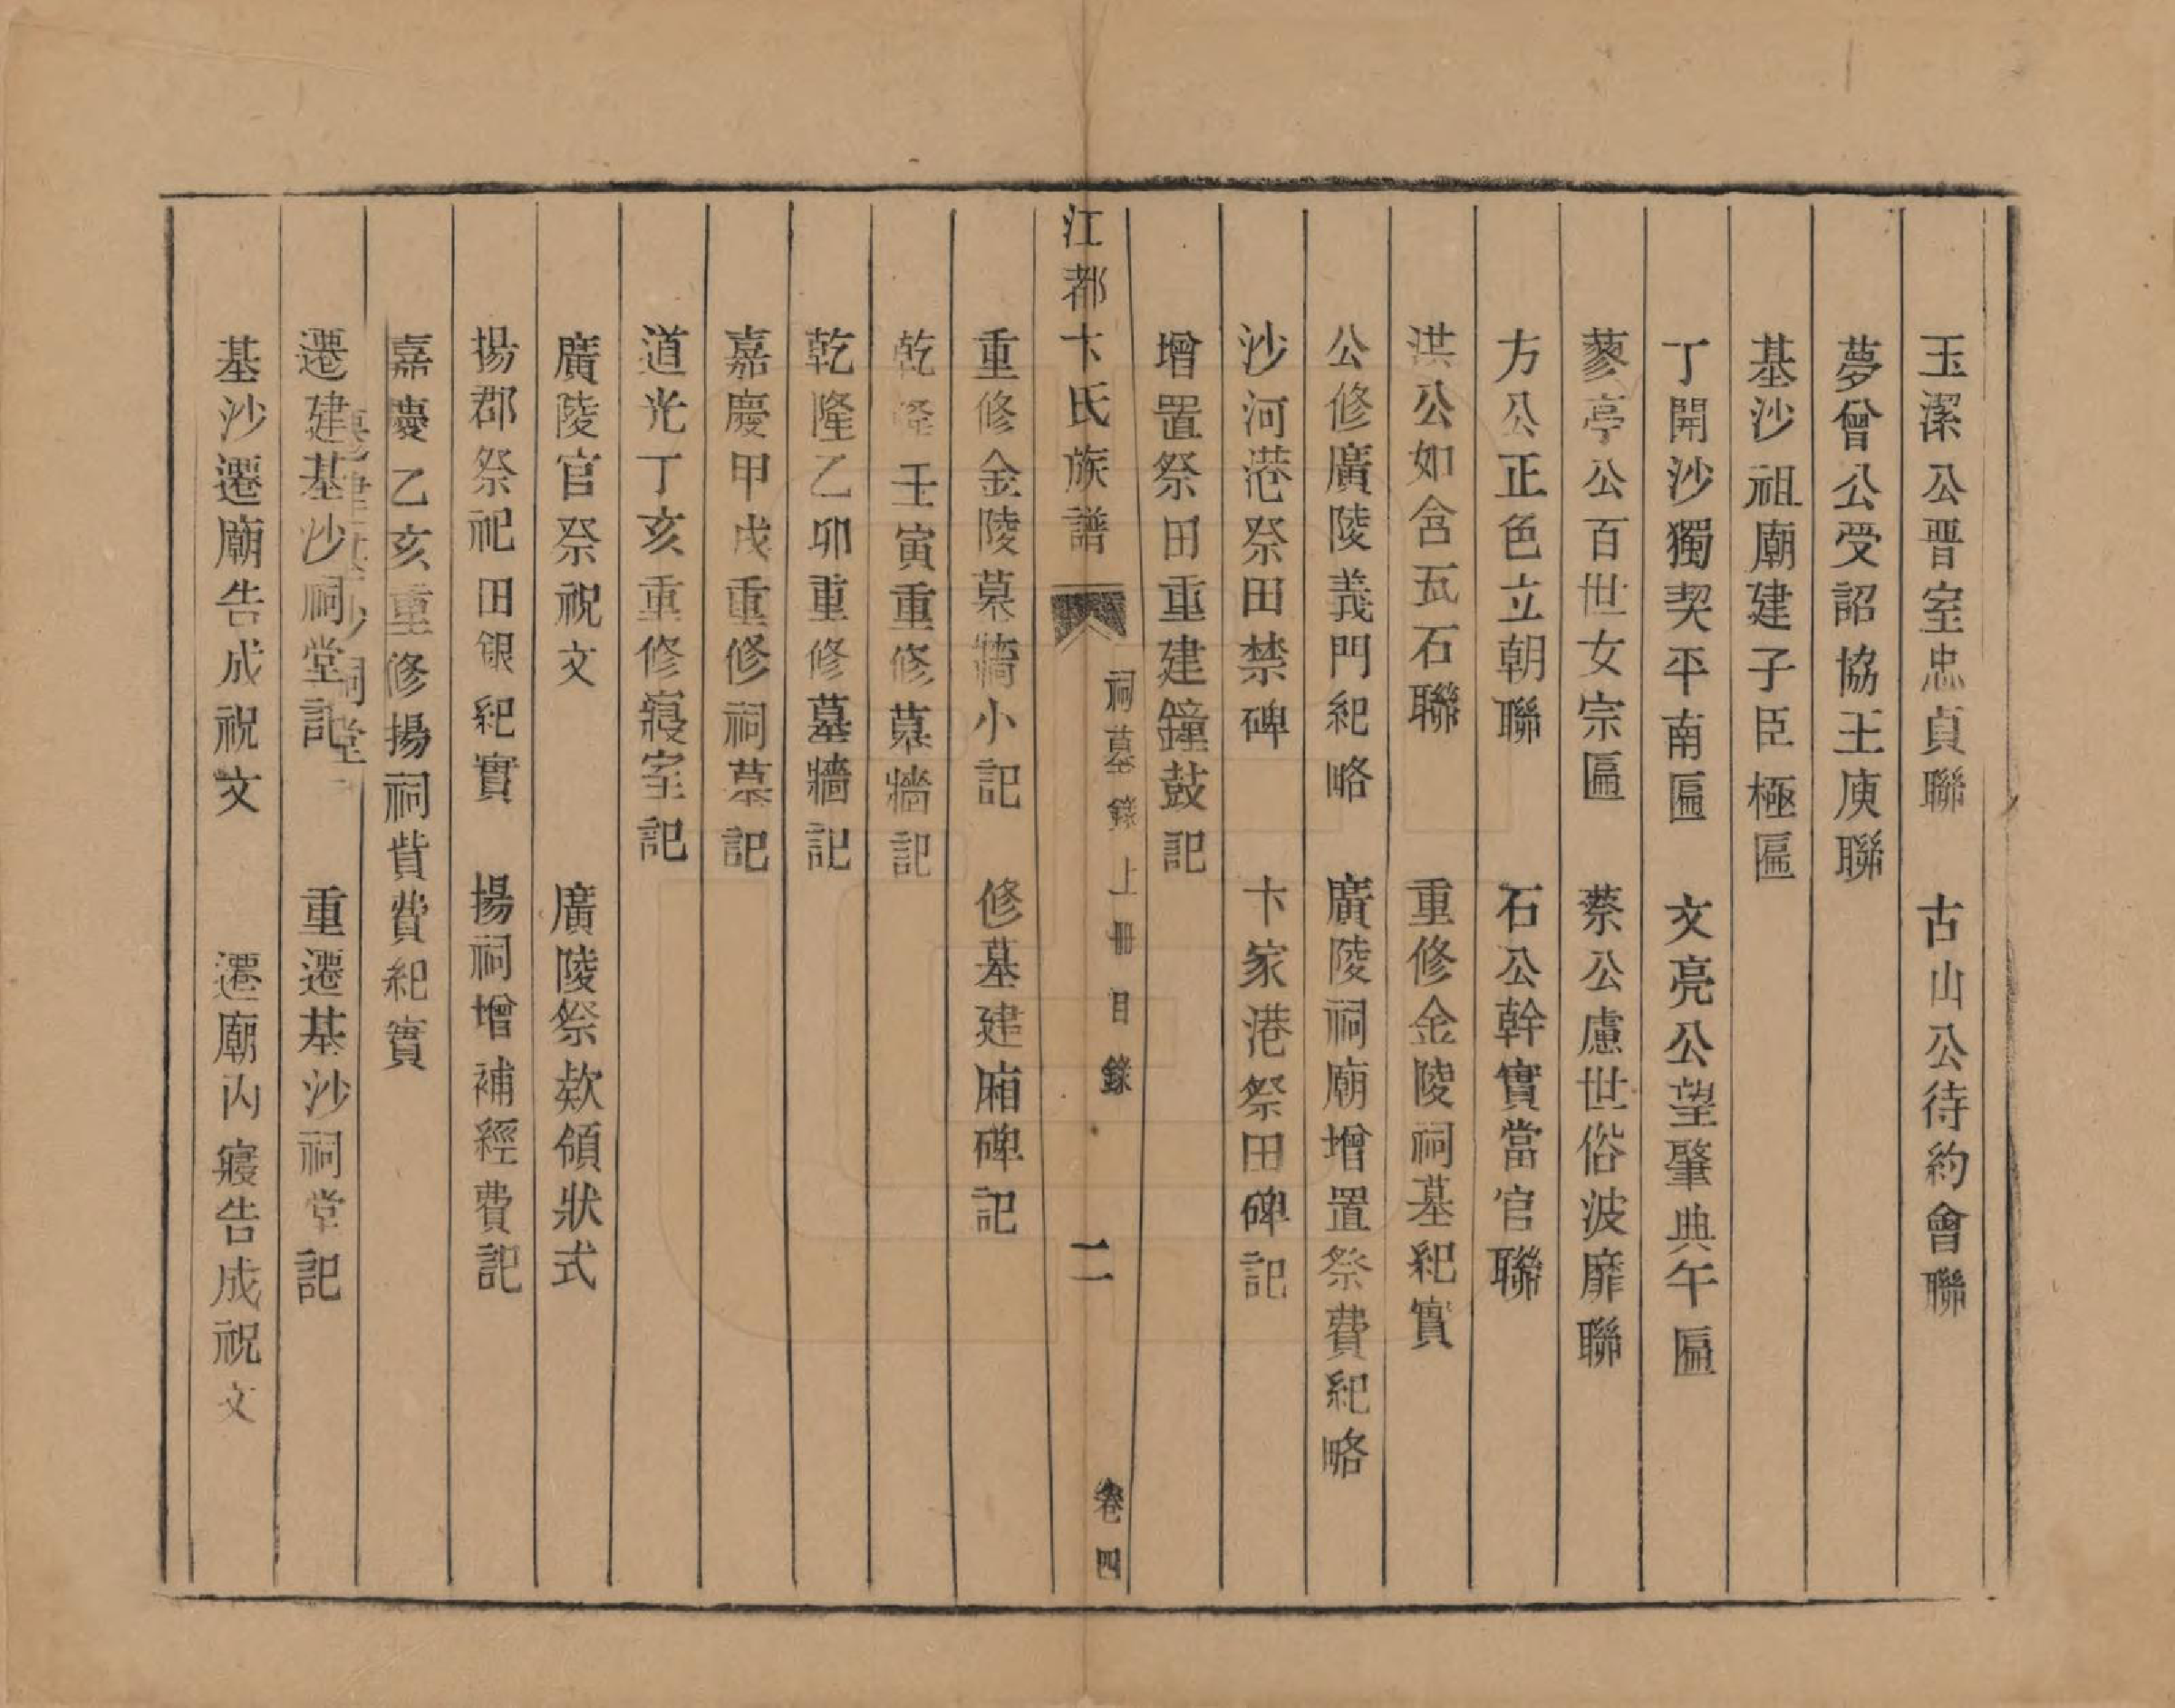 玉潔公晋室忠貞聯　古山公待約會聯
夢曾公受詔協王庾聯
基沙祖廟建子臣極匾
丁開沙獨契平南匾　文亮公望肇典午匾
蓼亭公百世女宗匾　蔡公慮世俗波靡聯
方公正色立朝聯　石公幹實當官聯
洪公如含瓦石聯　重修金陵祠墓紀實
公修廣陵義門紀略　廣陵祠廟增置祭費紀略
沙河港祭田禁碑　卞家港祭田碑記
增置祭田重建鐘鼓記
江都卞氏族譜　祠墓錄上冊目錄　二　卷四
重修金陵墓牆小記　修墓建廂碑記
乾隆壬寅重修墓牆記
乾隆乙卯重修墓牆記
嘉慶甲戌重修祠墓記
道光丁亥重修寢室記
廣陵官祭祝文　廣陵祭欵領狀式
揚郡祭祀田銀紀實　揚祠增補經費記
嘉慶乙亥重修揚祠貲費紀實
遷建基沙祠堂記　重遷基沙祠堂記
基沙遷廟告成祝文　遷廟內寢告成祝文